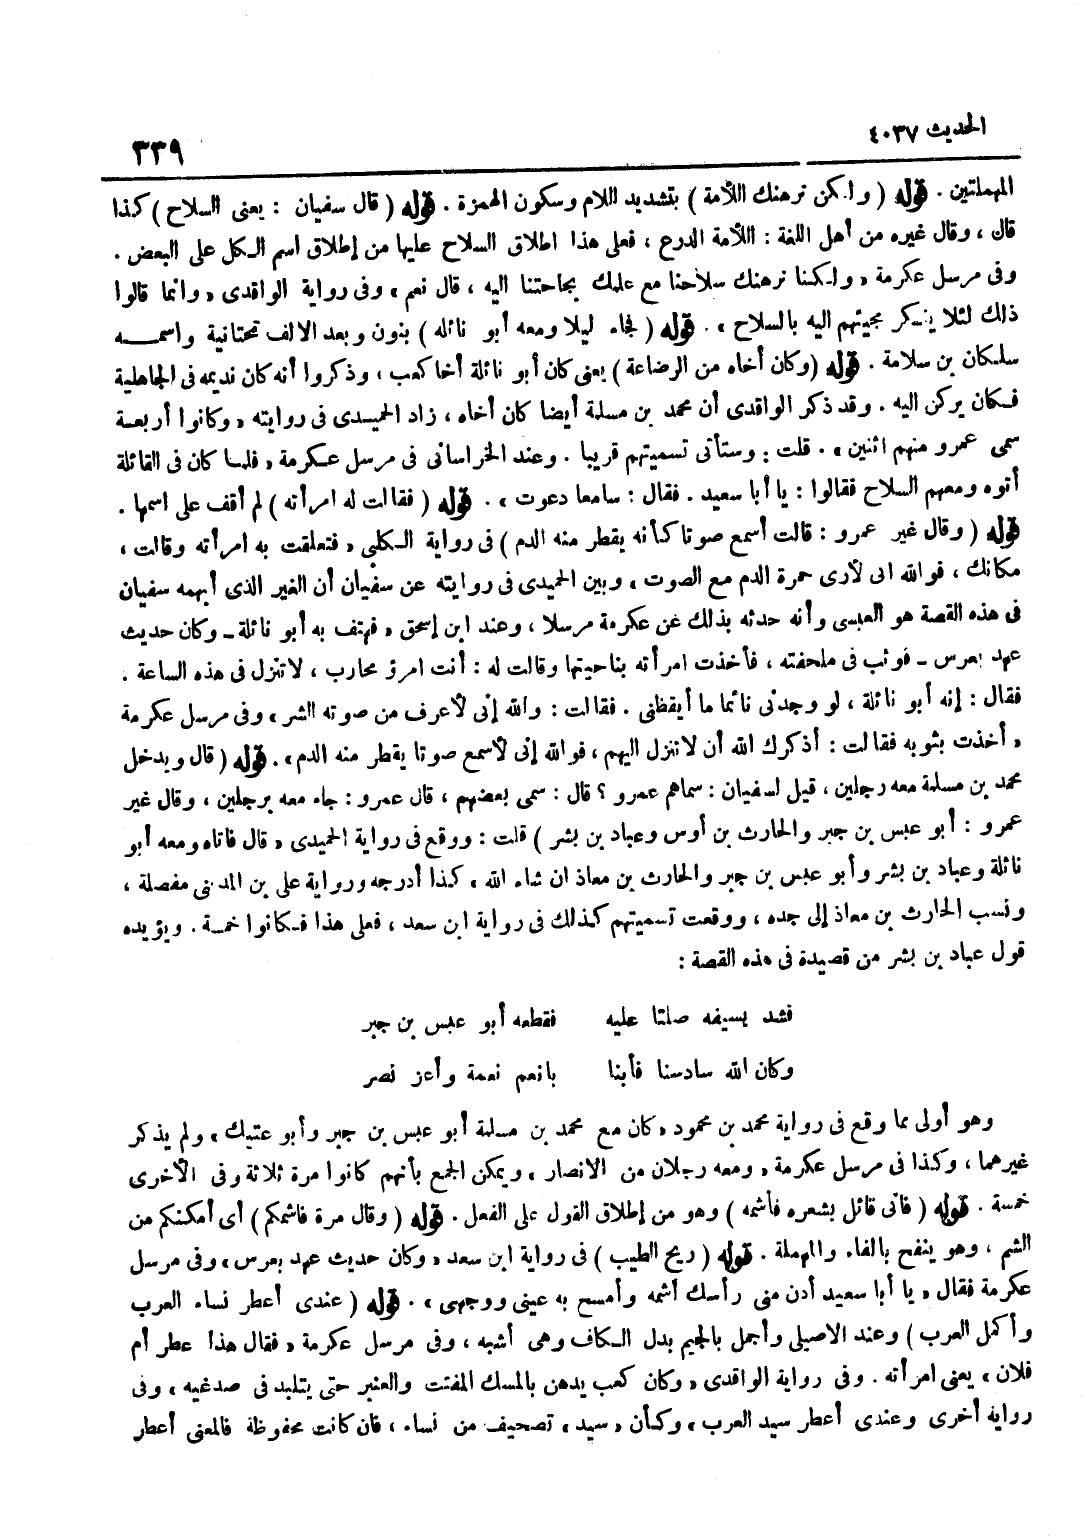 الحديث ٤٠٣٧
٣٣٩
المهملتين . قوله ( ولكن نرهنك اللأمة ) بتشديد اللام وسكون الهمزة . قوله ( قال سفيان : يعنى السلاح ) كذا
قال ، وقال غيره من أهل اللغة : اللأمة الدرع ، فعلى هذا اطلاق السلاح عليها من إطلاق اسم الكل على البعض .
وفى مرسل عكرمة « ولكنا نرهنك سلاحنا مع علمك بحاجتنا اليه ، قال نعم » وفى رواية الواقدى « وانما قالوا
ذلك لئلا ينكر مجيئهم اليه بالسلاح » . قوله ( فجاء ليلا ومعه أبو نائلة ) بنون وبعد الالف تحتانية واسمه
سلكان بن سلامة . قوله ( وكان أخاه من الرضاعة ) يعنى كان أبو نائلة أخا كعب ، وذكروا أنه كان نديمه فى الجاهلية
فكان يركن اليه . وقد ذكر الواقدى أن محمد بن مسلمة أيضا كان أخاه ، زاد الحميدى فى روايته « وكانوا أربعة
سمى عمرو منهم اثنين » . قلت : وستأتى تسميتهم قريبا . وعند الخراسانى فى مرسل عكرمة « فلما كان فى القائلة
أتوه ومعهم السلاح فقالوا : يا أبا سعيد . فقال : سامعا دعوت » . قوله ( فقالت له امرأته ) لم أقف على اسمها .
قوله ( وقال غير عمرو : قالت أسمع صوتا كأنه يقطر منه الدم ) فى رواية الكلبى « فتعلقت به امرأته وقالت ،
مكانك ، فوالله انى لأرى حمرة الدم مع الصوت ، وبين الحميدى فى روايته عن سفيان أن الغير الذى أبهمه سفيان
فى هذه القصة هو العبسى وأنه حدثه بذلك عن عكرمة مرسلا ، وعند ابن إسحق « فهتف به أبو نائلة ـ وكان حديث
عهد بعرس ـ فوثب فى ملحفته ، فأخذت امرأته بناحيتها وقالت له : أنت امرؤ محارب ، لا تنزل فى هذه الساعة .
فقال : إنه أبو نائلة ، لو وجدنى نائما ما أيقظنى . فقالت : والله إنى لأعرف من صوته الشر » وفى مرسل عكرمة
« أخذت بثوبه فقالت : أذكرك الله أن لا تنزل اليهم ، فوالله إنى لأسمع صوتا يقطر منه الدم » . قوله ( قال ويدخل
محمد بن مسلمة معه رجلين ، قيل لسفيان : سماهم عمرو ؟ قال : سمى بعضهم ، قال عمرو : جاء معه برجلين ، وقال غير
عمرو : أبو عبس بن جبر والحارث بن أوس وعباد بن بشر ) قلت : ووقع فى رواية الحميدى « قال فاتاه ومعه أبو
نائلة وعباد بن بشر وأبو عبس بن جبر والحارث بن معاذ ان شاء الله » كذا أدرجه ورواية على بن المدينى مفصلة ،
ونسب الحارث بن معاذ إلى جده ، ووقعت تسميتهم كذلك فى رواية ابن سعد ، فعلى هذا فكانوا خمسة . ويؤيده
قول عباد بن بشر من قصيدة فى هذه القصة :
فشد بسيفه صلتا عليه   فقطعه أبو عبس بن جبر
وكان الله سادسنا فأبنا   بانعم نعمة وأعز نصر
وهو أولى مما وقع فى رواية محمد بن محمود « كان مع محمد بن مسلمة أبو عبس بن جبر وأبو عتيك » ولم يذكر
غيرهما ، وكذا فى مرسل عكرمة « ومعه رجلان من الانصار » ويمكن الجمع بأنهم كانوا مرة ثلاثة وفى الأخرى
خمسة . قوله ( فانى قائل بشعره فأشمه ) وهو من إطلاق القول على الفعل . قوله ( وقال مرة فاشمكم ) أى أمكنكم من
الشم ، وهو ينفح بالفاء والمهملة . قوله ( ريح الطيب ) فى رواية ابن سعد « وكان حديث عهد بعرس » وفى مرسل
عكرمة فقال « يا أبا سعيد أدن منى رأسك أشمه وأمسح به عينى ووجهى » . قوله ( عندى أعطر نساء العرب
وأكمل العرب ) وعند الاصيلى وأجمل بالجيم بدل الكاف وهى أشبه ، وفى مرسل عكرمة « فقال هذا عطر أم
فلان » يعنى امرأته . وفى رواية الواقدى « وكان كعب يدهن بالمسك المفتت والعنبر حتى يتلبد فى صدغيه » وفى
رواية أخرى وعندى أعطر سيد العرب » وكأن « سيد » تصحيف من نساء ، فان كانت محفوظة فالمعنى أعطر